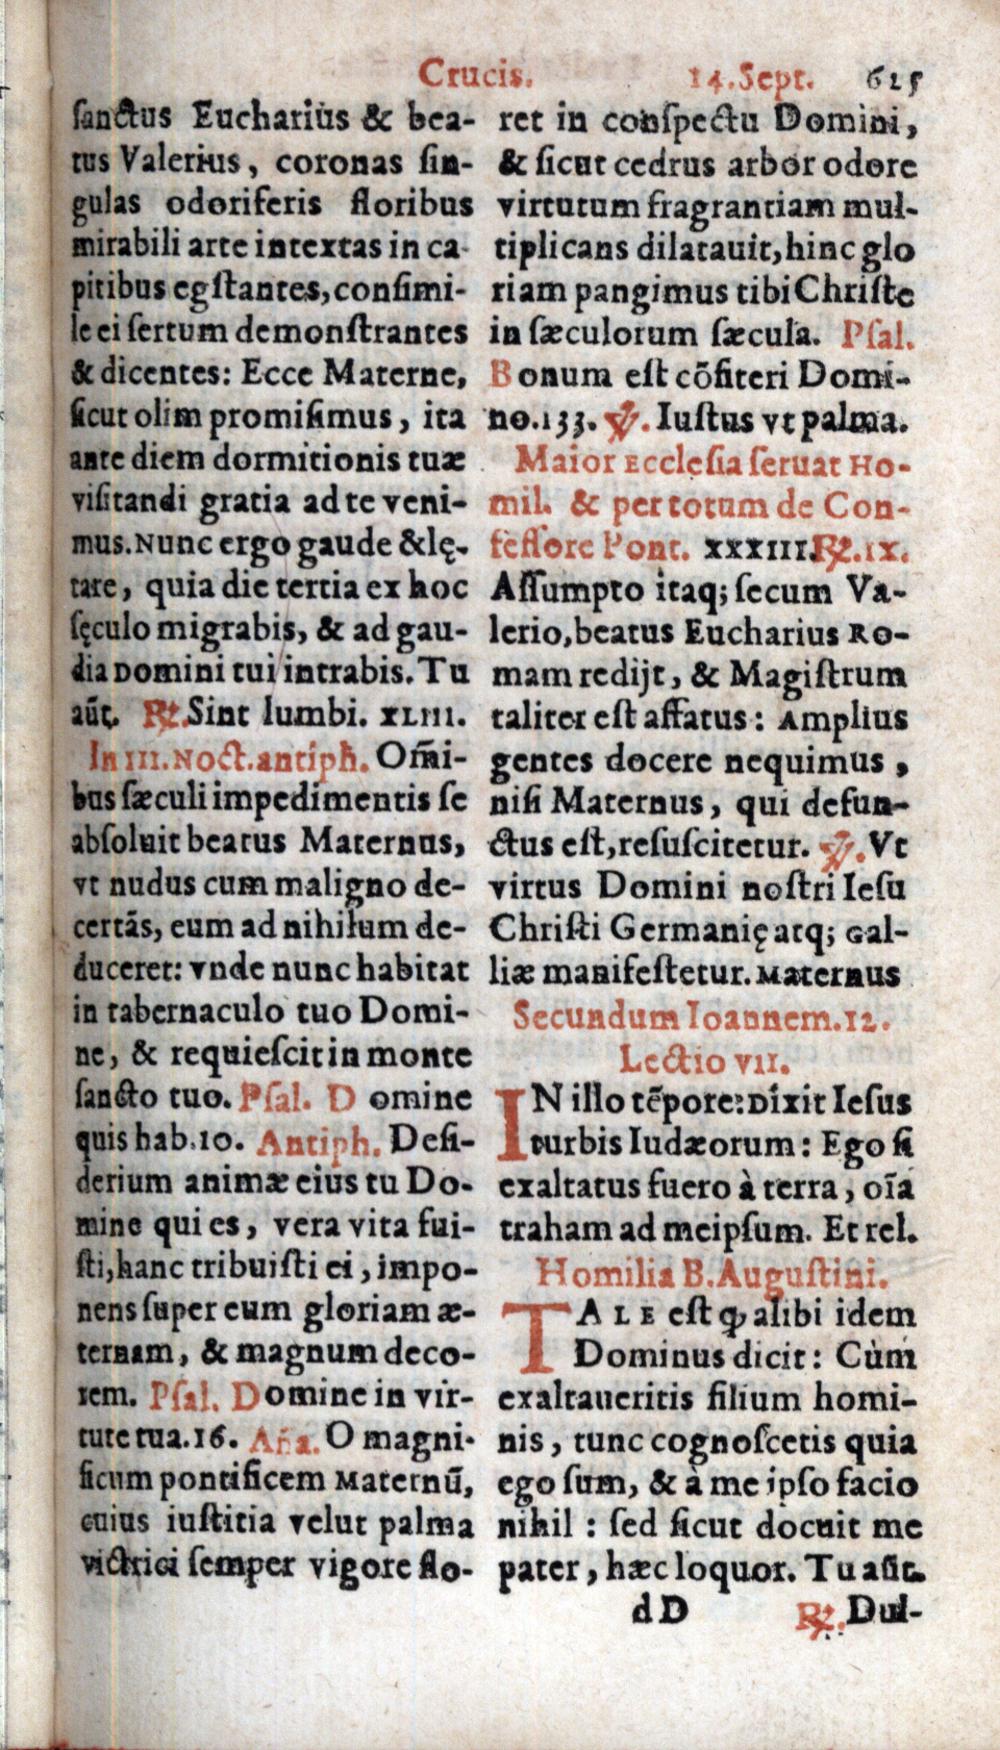 Crucis. 14. Sept. 615
sanctus Eucharius & bea-
tus Valerius, coronas sin-
gulas odoriferis floribus
mirabili arte intextas in ca
pitibus egstantes, consimi-
le ei sertum demonstrantes
& dicentes: Ecce Materne,
sicut olim promisimus, ita
ante diem dormitionis tuæ
visitandi gratia ad te veni-
mus. Nunc ergo gaude & lę-
tare, quia die tertia ex hoc
sęculo migrabis, & ad gau-
dia Domini tui intrabis. Tu
aūt. ℟. Sint lumbi. XLIII.
In III. Noct. antiph. Om̄i-
bus sæculi impedimentis se
absoluit beatus Maternus,
vt nudus cum maligno de-
certās, eum ad nihilum de-
duceret: vnde nunc habitat
in tabernaculo tuo Domi-
ne, & requiescit in monte
sancto tuo. Psal. Domine
quis hab. 10. Antiph. Desi-
derium animæ eius tu Do-
mine qui es, vera vita fui-
sti, hanc tribuisti ei, impo-
nens super eum gloriam æ-
ternam, & magnum deco-
rem. Psal. Domine in vir-
tute tua. 16. Añа. O magni-
ficum pontificem Maternū,
cuius iustitia velut palma
victrici semper vigore flo-
ret in conspectu Domini,
& sicut cedrus arbor odore
virtutum fragrantiam mul-
tiplicans dilatauit, hinc glo
riam pangimus tibi Christe
in sæculorum sæcula. Psal.
Bonum est cōfiteri Domi-
no. 133. ℣. Iustus vt palma.
Maior Ecclesia seruat Ho-
mil. & per totum de Con-
fessore Pont. XXXIII. ℟. IX.
Assumpto itaq; secum Va-
lerio, beatus Eucharius Ro-
mam redijt, & Magistrum
taliter est affatus: Amplius
gentes docere nequimus,
nisi Maternus, qui defun-
ctus est, resuscitetur. ℣. Vt
virtus Domini nostri Iesu
Christi Germanię atq; Gal-
liæ manifestetur. Maternus
Secundum Ioannem. 12.
Lectio VII.
IN illo tēpore: Dixit Iesus
turbis Iudæorum: Ego si
exaltatus fuero à terra, oīa
traham ad meipsum. Et rel.
Homilia B. Augustini.
TALE est ꝙ alibi idem
Dominus dicit: Cùm
exaltaueritis filium homi-
nis, tunc cognoscetis quia
ego sum, & à me ipso facio
nihil: sed sicut docuit me
pater, hæc loquor. Tu aūt.
dD ℟. Dul-